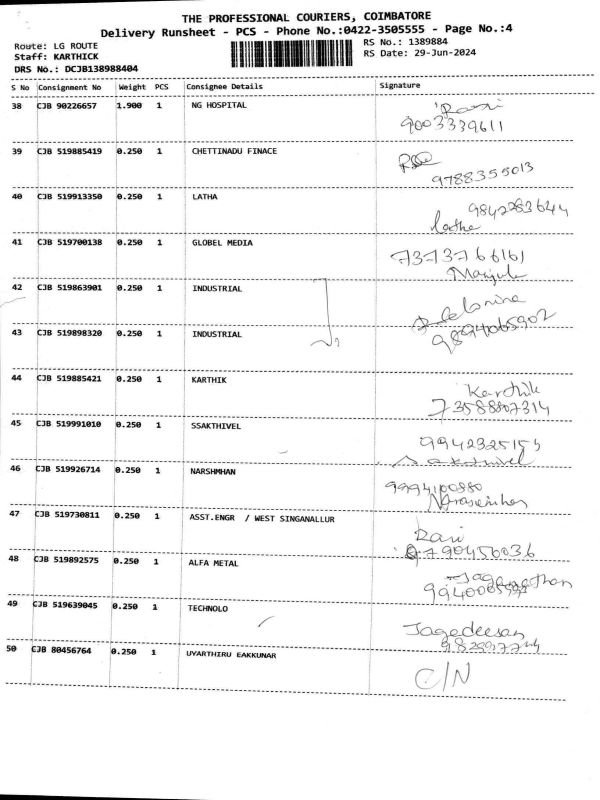 THE PROFESSIONAL COURIERS, COIMBATORE
Delivery Runsheet - PCS - Phone No.:0422-3505555 - Page No.:4
Route: LG ROUTE
Staff: KARTHICK
DRS No.: DCJB138988404
RS No.: 1389884
RS Date: 29-Jun-2024
S No Consignment No Weight PCS Consignee Details Signature
38 CJB 90226657 1.900 1 NG HOSPITAL
9003339611
39 CJB 519885419 0.250 1 CHETTINADU FINACE
9788355013
40 CJB 519913350 0.250 1 LATHA 9842283644
latha
41 CJB 519700138 0.250 1 GLOBEL MEDIA 7373766161
Manjula
42 CJB 519863901 0.250 1 INDUSTRIAL
43 CJB 519898320 0.250 1 INDUSTRIAL 9894065902
44 CJB 519885421 0.250 1 KARTHIK Karthik
7358807314
45 CJB 519991010 0.250 1 SSAKTHIVEL
Sakthivel
46 CJB 519926714 0.250 1 NARSHMHAN 9994100880
47 CJB 519730811 0.250 1 ASST.ENGR / WEST SINGANALLUR Ravi
48 CJB 519892575 0.250 1 ALFA METAL Jaganathan
49 CJB 519639045 0.250 1 TECHNOLO Jagadeesan
50 CJB 80456764 0.250 1 UYARTHIRU EAKKUNAR C/N